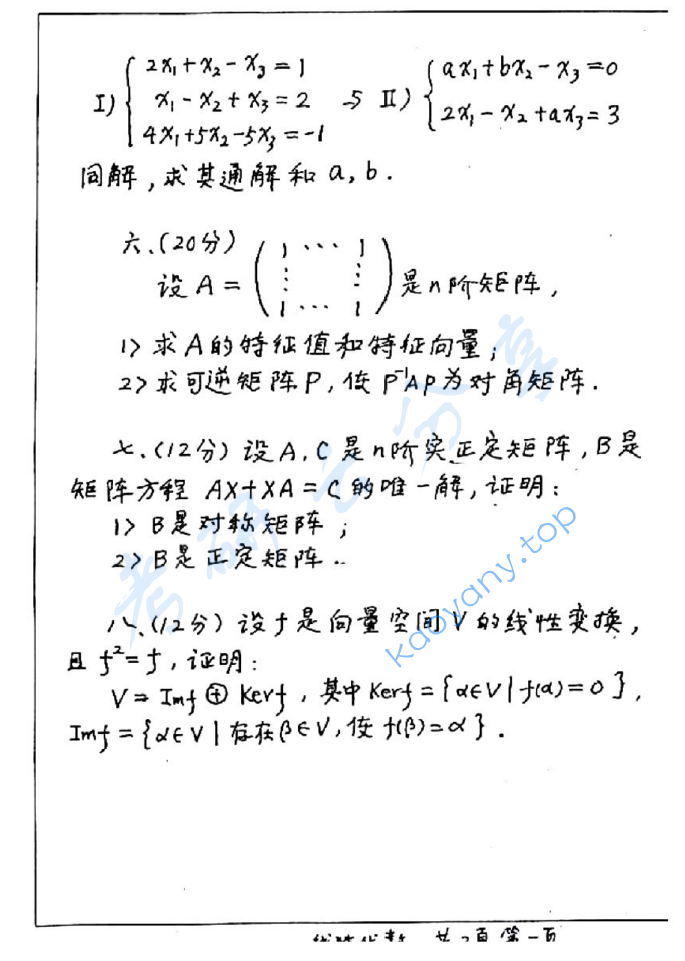 I) { 2x₁+x₂-x₃=1
x₁-x₂+x₃=2
4x₁+5x₂-5x₃=-1
与 II) { ax₁+bx₂-x₃=0
2x₁-x₂+ax₃=3
同解,求其通解和a,b.
六、(20分)
设A= ( 1 ⋯ 1
⋮ ⋮
1 ⋯ 1 ) 是n阶矩阵,
1> 求A的特征值和特征向量;
2> 求可逆矩阵P,使P⁻¹AP为对角矩阵.
七、(12分)设A,C是n阶实正定矩阵,B是
矩阵方程 AX+XA=C的唯一解,证明:
1> B是对称矩阵;
2> B是正定矩阵..
八、(12分)设f是向量空间V的线性变换,
且f²=f,证明:
V=Imf⊕Kerf,其中Kerf={α∈V|f(α)=0},
Imf={α∈V|存在β∈V,使f(β)=α}.
考研云分享
kaoyany.top
共2页第一页